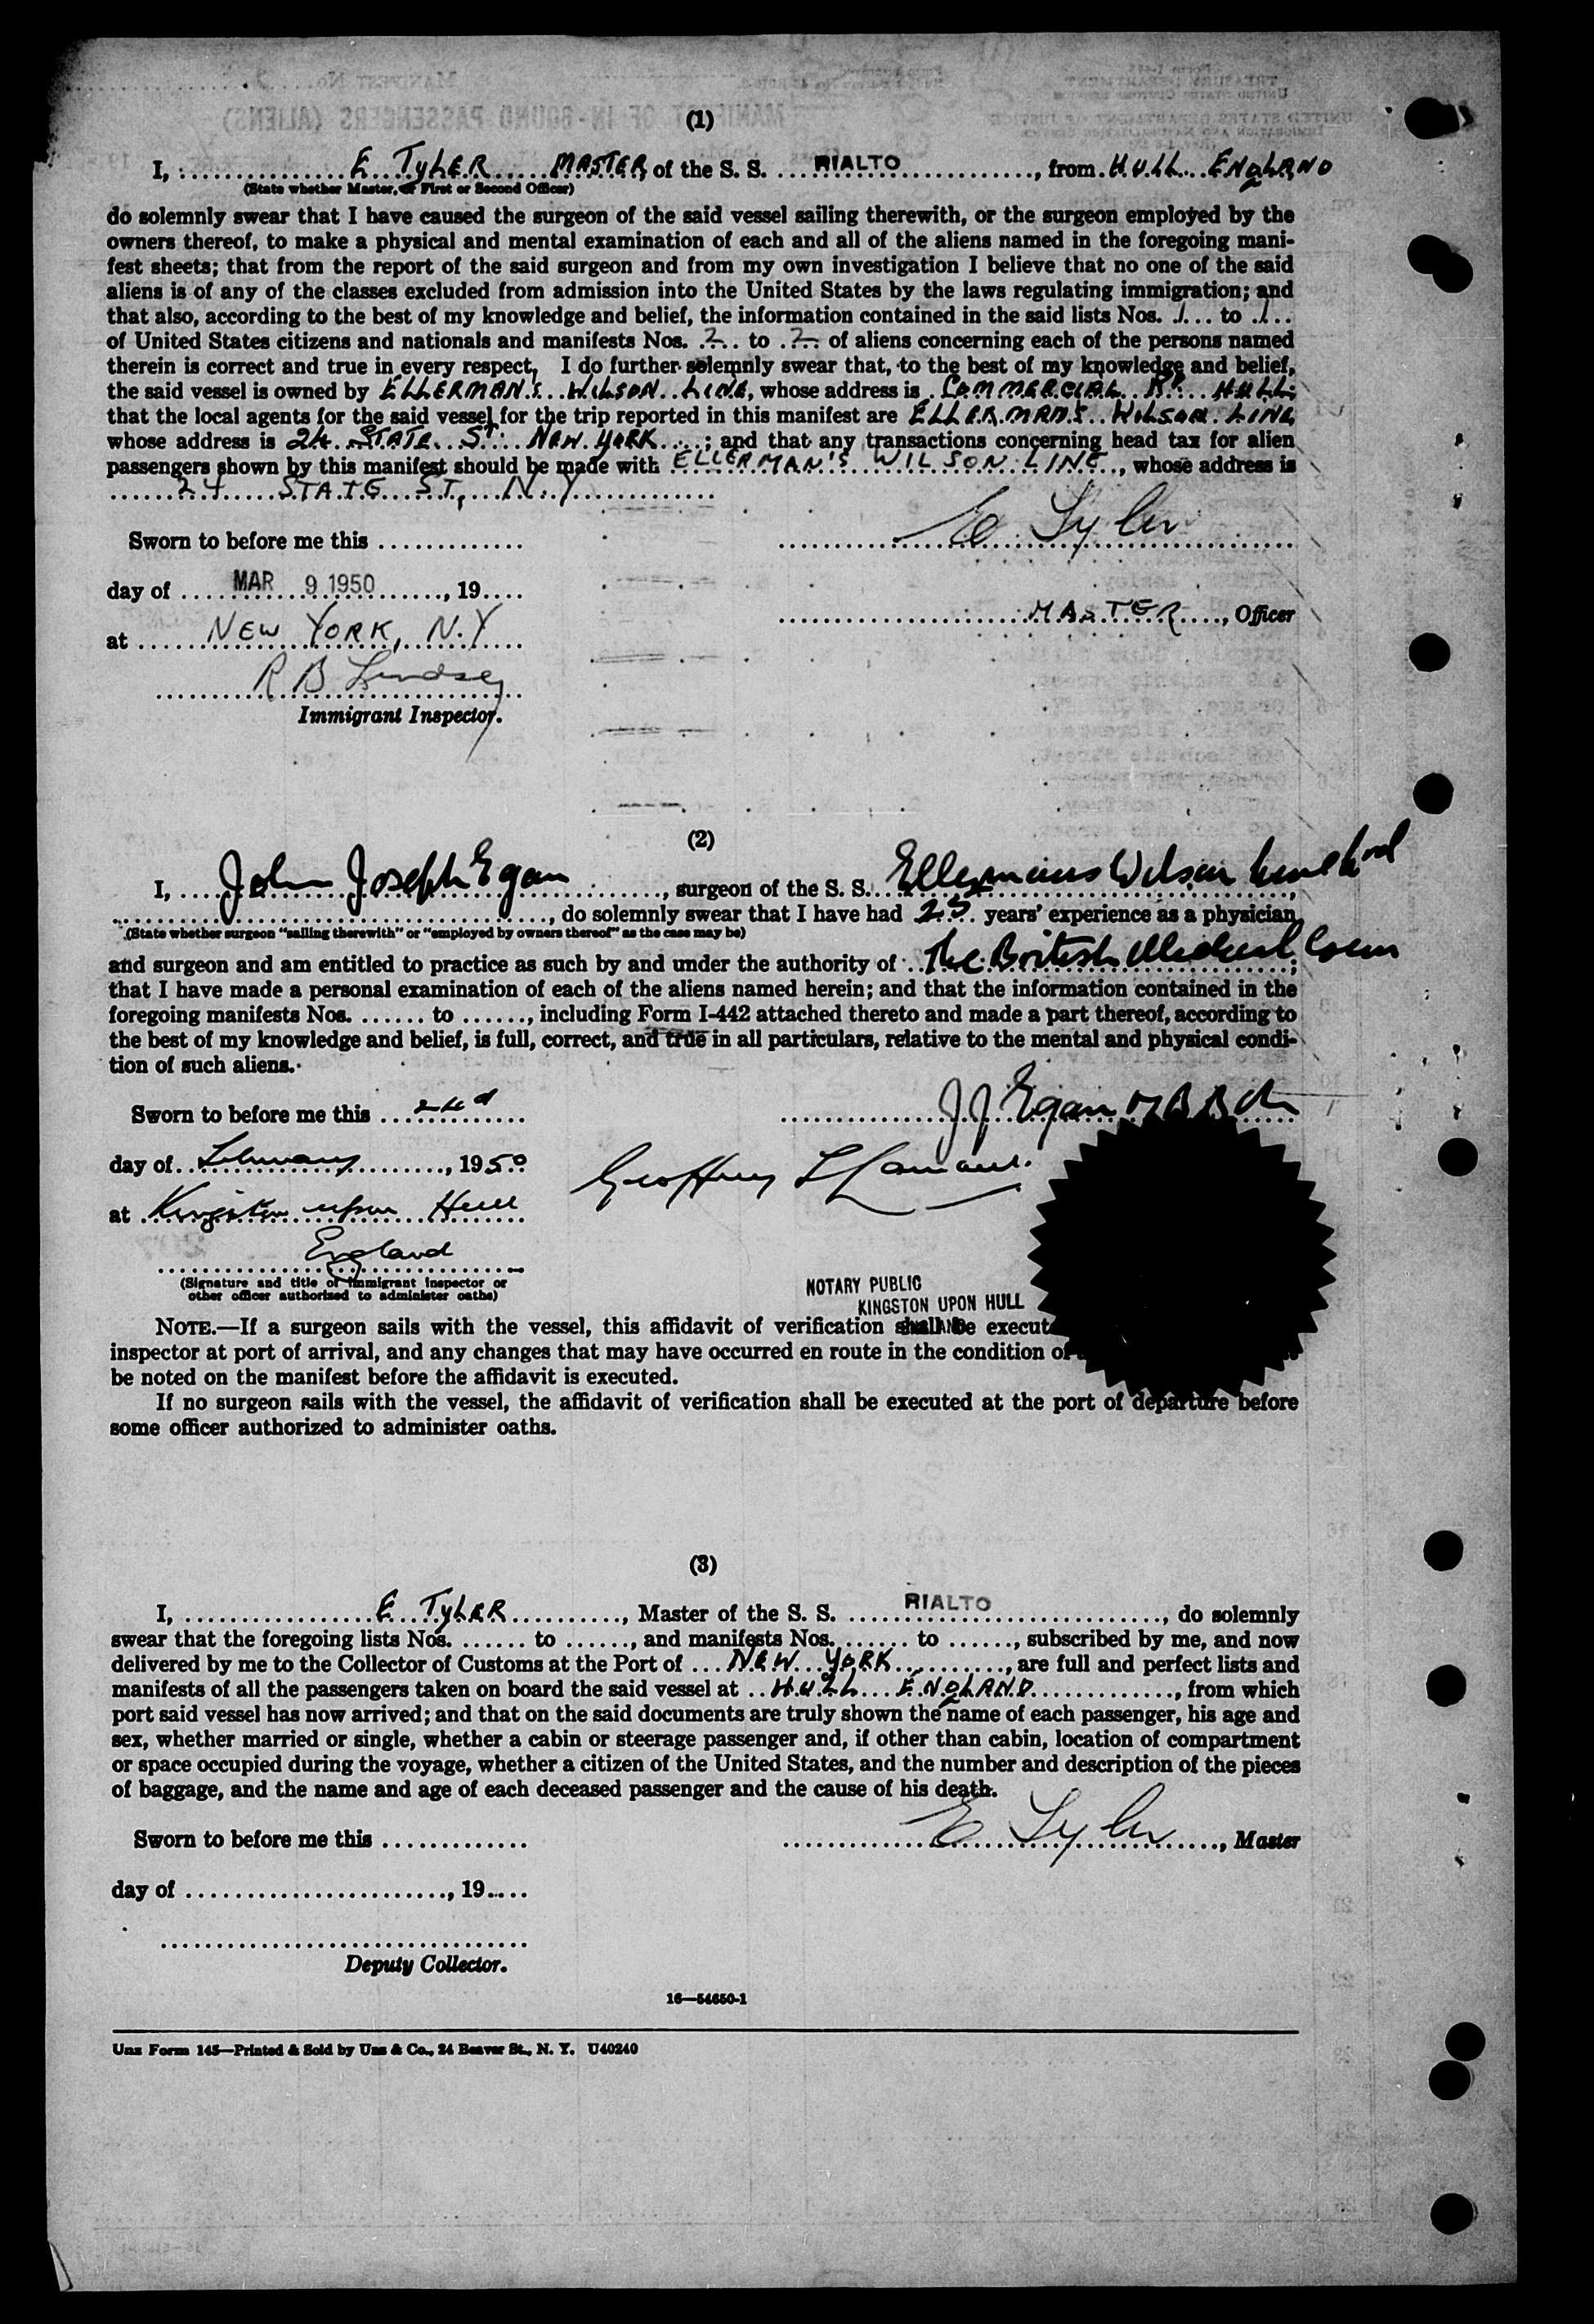 (1)
I, ..... E TYLER MASTER, of the S. S. RIALTO, from HULL ENGLAND
(State whether Master, or First or Second Officer)
do solemnly swear that I have caused the surgeon of the said vessel sailing therewith, or the surgeon employed by the
owners thereof, to make a physical and mental examination of each and all of the aliens named in the foregoing mani-
fest sheets; that from the report of the said surgeon and from my own investigation I believe that no one of the said
aliens is of any of the classes excluded from admission into the United States by the laws regulating immigration; and
that also, according to the best of my knowledge and belief, the information contained in the said lists Nos. 1 to 1
of United States citizens and nationals and manifests Nos. 2 to 2 of aliens concerning each of the persons named
therein is correct and true in every respect, I do further solemnly swear that, to the best of my knowledge and belief,
the said vessel is owned by ELLERMAN'S WILSON LINE, whose address is COMMERCIAL RD HULL;
that the local agents for the said vessel for the trip reported in this manifest are ELLERMAN'S WILSON LINE
whose address is 24 STATE ST NEW YORK; and that any transactions concerning head tax for alien
passengers shown by this manifest should be made with ELLERMAN'S WILSON LINE, whose address is
24 STATE ST, N.Y
Sworn to before me this ............. E Tyler
day of MAR 9 1950, 19....
MASTER, Officer
at NEW YORK, N.Y
R B Lindsey
Immigrant Inspector.
(2)
I, John Joseph Egan, surgeon of the S. S. Ellermans Wilson Line
............, do solemnly swear that I have had 25 years' experience as a physician
(State whether surgeon "sailing therewith" or "employed by owners thereof" as the case may be)
and surgeon and am entitled to practice as such by and under the authority of The British Medical Coun;
that I have made a personal examination of each of the aliens named herein; and that the information contained in the
foregoing manifests Nos. ...... to ......, including Form I-442 attached thereto and made a part thereof, according to
the best of my knowledge and belief, is full, correct, and true in all particulars, relative to the mental and physical condi-
tion of such aliens.
Sworn to before me this ... J J Egan M B B Ch
day of February, 1950
Geoffrey
at Kingston upon Hull
England
(Signature and title of immigrant inspector or
other officer authorized to administer oaths)
NOTARY PUBLIC
KINGSTON UPON HULL
NOTE.—If a surgeon sails with the vessel, this affidavit of verification shall be execut
inspector at port of arrival, and any changes that may have occurred en route in the condition of
be noted on the manifest before the affidavit is executed.
If no surgeon sails with the vessel, the affidavit of verification shall be executed at the port of departure before
some officer authorized to administer oaths.
(3)
I, ..... E TYLER, Master of the S. S. RIALTO, do solemnly
swear that the foregoing lists Nos. ...... to ......, and manifests Nos. ...... to ......, subscribed by me, and now
delivered by me to the Collector of Customs at the Port of NEW YORK, are full and perfect lists and
manifests of all the passengers taken on board the said vessel at HULL ENGLAND, from which
port said vessel has now arrived; and that on the said documents are truly shown the name of each passenger, his age and
sex, whether married or single, whether a cabin or steerage passenger and, if other than cabin, location of compartment
or space occupied during the voyage, whether a citizen of the United States, and the number and description of the pieces
of baggage, and the name and age of each deceased passenger and the cause of his death.
Sworn to before me this ............. E Tyler, Master
day of ......................., 19....
Deputy Collector.
16—54650-1
Unz Form 145—Printed & Sold by Unz & Co., 24 Beaver St., N. Y. U40240